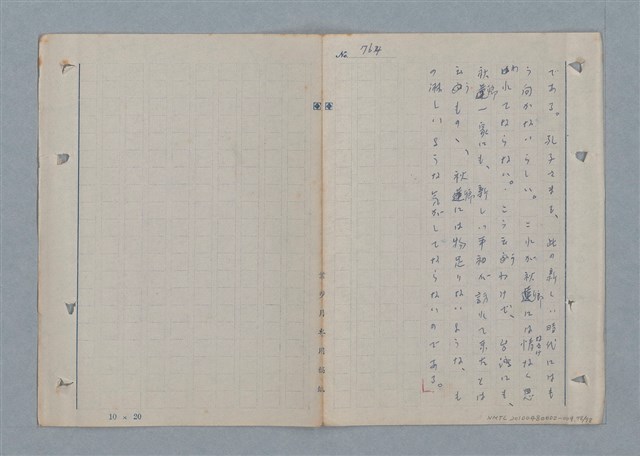 No 764
である。孔子でさえも、此の新しい時代にはも
う向かないらしい。これが秋卿には情なく思
はれてならない。こう云うわけで、台湾にも、
秋卿一家にも、新しい平和が訪れて来たとは
云うものゝ、秋卿には物足りないような、も
の淋しいような気がしてならないのである。
なさけ
常夕月光用稿紙
10 × 20